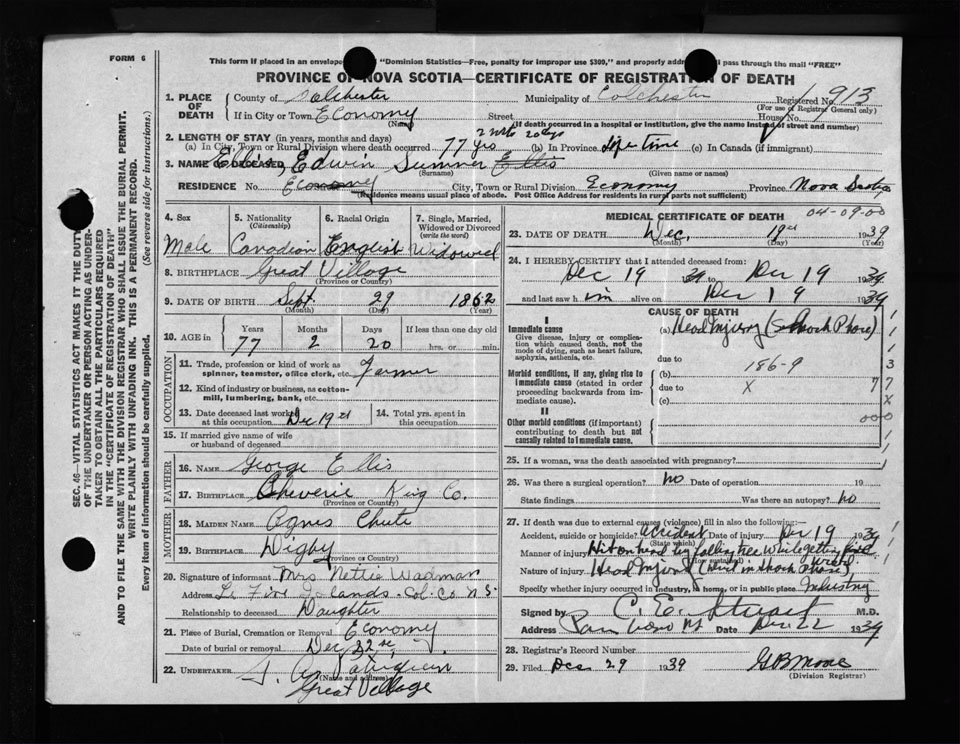 FORM 6
This form if placed in an envelope "Dominion Statistics—Free, penalty for improper use $300," and properly addr pass through the mail "FREE"
PROVINCE OF NOVA SCOTIA—CERTIFICATE OF REGISTRATION OF DEATH
1. PLACE OF DEATH
County of Colchester Municipality of Colchester Registered No. 913
(For use of Registrar General only)
If in City or Town Economy Street House No.
(Name) (If death occurred in a hospital or institution, give the name instead of street and number)
2. LENGTH OF STAY (in years, months and days) 2 mths 20 dys
(a) In City, Town or Rural Division where death occurred 77 yrs (b) In Province Life time (c) In Canada (if immigrant)
3. NAME OF DECEASED Ellis, Edwin Sumner Ellis
(Surname) (Given name or names)
RESIDENCE No. Economy City, Town or Rural Division Economy Province Nova Scotia
(Residence means usual place of abode. Post Office Address for residents in rural parts not sufficient)
4. Sex Male
5. Nationality (Citizenship) Canadian
6. Racial Origin English
7. Single, Married, Widowed or Divorced (write the word) Widowed
8. BIRTHPLACE Great Village
(Province or Country)
9. DATE OF BIRTH Sept. 29 1862
(Month) (Day) (Year)
10. AGE in Years Months Days If less than one day old
77 2 20 hrs. or min.
OCCUPATION
11. Trade, profession or kind of work as spinner, teamster, office clerk, etc. Farmer
12. Kind of industry or business, as cotton-mill, lumbering, bank, etc.
13. Date deceased last worked at this occupation Dec 19th
14. Total yrs. spent in this occupation
15. If married give name of wife or husband of deceased
FATHER
16. NAME George Ellis
17. BIRTHPLACE Cheverie King Co.
(Province or Country)
MOTHER
18. MAIDEN NAME Agnes Chute
19. BIRTHPLACE Digby
(Province or Country)
20. Signature of informant Mrs Nettie Wadman
Address L. Five Islands. Col. Co. N.S.
Relationship to deceased Daughter
21. Place of Burial, Cremation or Removal Economy
Date of burial or removal Dec 22
22. UNDERTAKER
(Name and address)
Great Village
MEDICAL CERTIFICATE OF DEATH 04-09-00
23. DATE OF DEATH Dec. 19th 1939
(Month) (Day) (Year)
24. I HEREBY CERTIFY that I attended deceased from:
Dec 19 1939 to Dec 19 1939
and last saw him alive on Dec 19 1939
CAUSE OF DEATH
I
Immediate cause
Give disease, injury or complication which caused death, not the mode of dying, such as heart failure, asphyxia, asthenia, etc.
(a) Head Injury (Shock Phase)
due to
Morbid conditions, if any, giving rise to immediate cause (stated in order proceeding backwards from immediate cause).
(b) 186-9
due to X
(c)
II
Other morbid conditions (if important) contributing to death but not causally related to immediate cause.
1
1
3
7 7
X
000
25. If a woman, was the death associated with pregnancy?
26. Was there a surgical operation? no Date of operation 19
State findings Was there an autopsy? no
27. If death was due to external causes (violence) fill in also the following:—
Accident, suicide or homicide? accident Date of injury Dec 19 1939
(State which)
Manner of injury Hit on head by falling tree while getting fire wood
Nature of injury Head Injury (Died in Shock Phase)
Specify whether injury occurred in Industry, in home, or in public place Industry
Signed by C. E. Stuart M.D.
Address Date Dec 22 1939
28. Registrar's Record Number
29. Filed Dec 29 1939 G B Moore
(Division Registrar)
SEC. 46—VITAL STATISTICS ACT MAKES IT THE DUTY OF THE UNDERTAKER OR PERSON ACTING AS UNDERTAKER TO OBTAIN ALL THE PARTICULARS REQUIRED IN THE "CERTIFICATE OF REGISTRATION OF DEATH"
AND TO FILE THE SAME WITH THE DIVISION REGISTRAR WHO SHALL ISSUE THE BURIAL PERMIT.
WRITE PLAINLY WITH UNFADING INK. THIS IS A PERMANENT RECORD.
Every item of information should be carefully supplied. (See reverse side for instructions.)